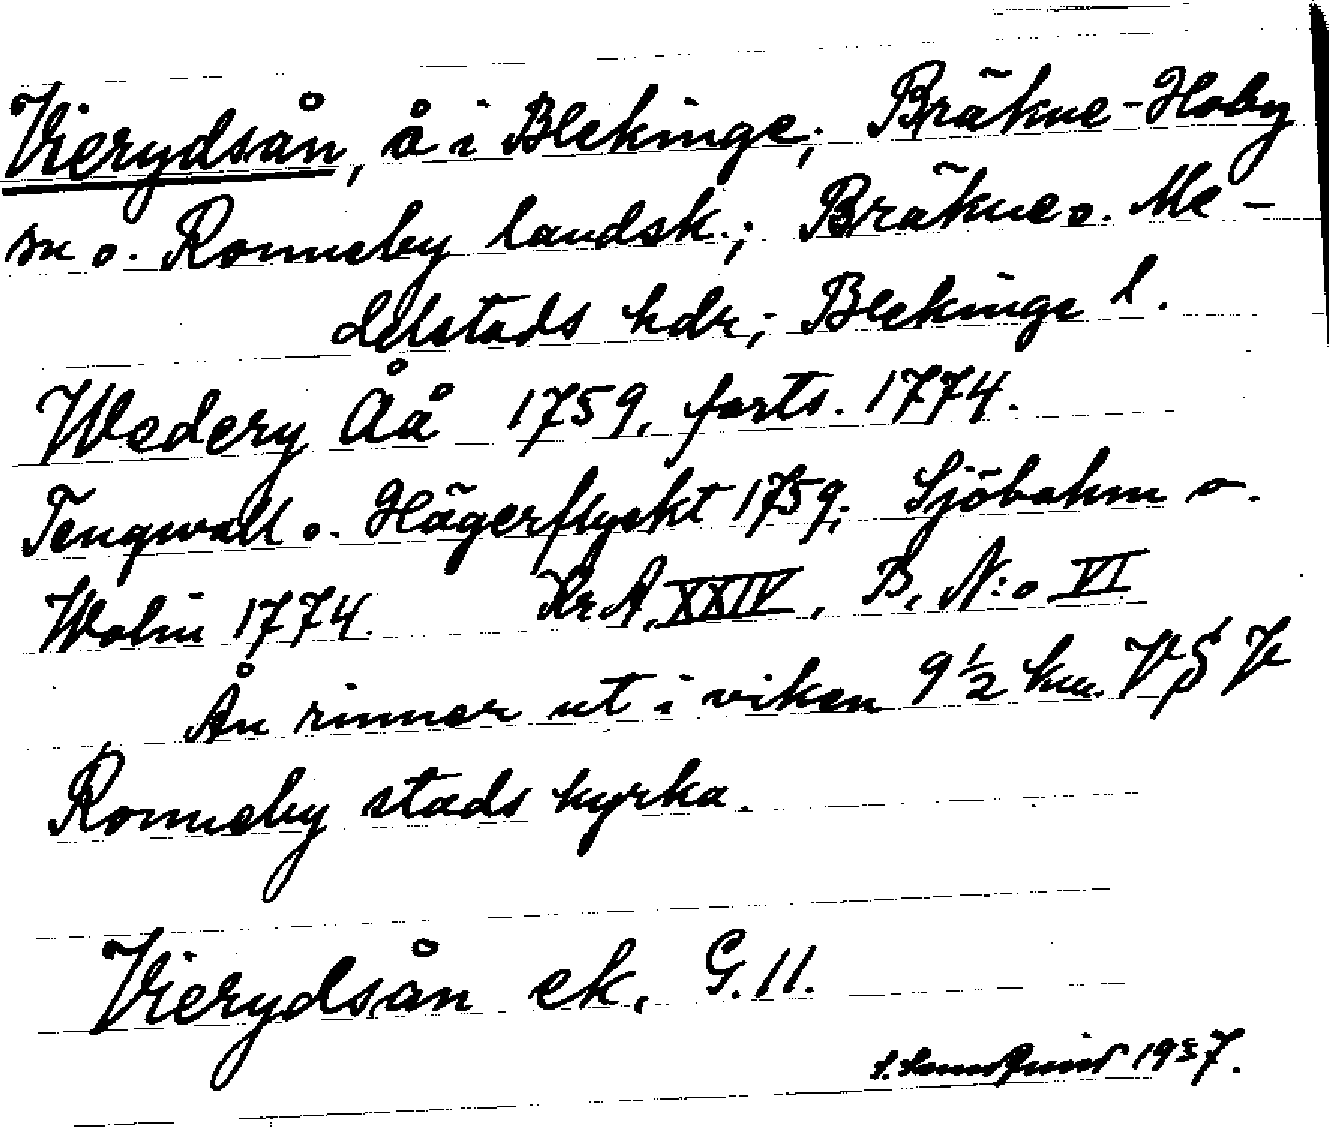 Vierydsån, å i Blekinge; Bräkne-Hoby
sn o. Ronneby landsk.; Bräkne o. Me-
delstads hdr; Blekinge l.
Wedery Åå 1759, forts. 1774.
Tengwall o. Hägerflyckt 1759; Sjöbohm o.
Wolin 1774. KrA, XXIV, B, N:o VI
Ån rinner ut i viken 9 ½ km. V
Ronneby stads kyrka.
Vierydsån ek. G.11.
1937.